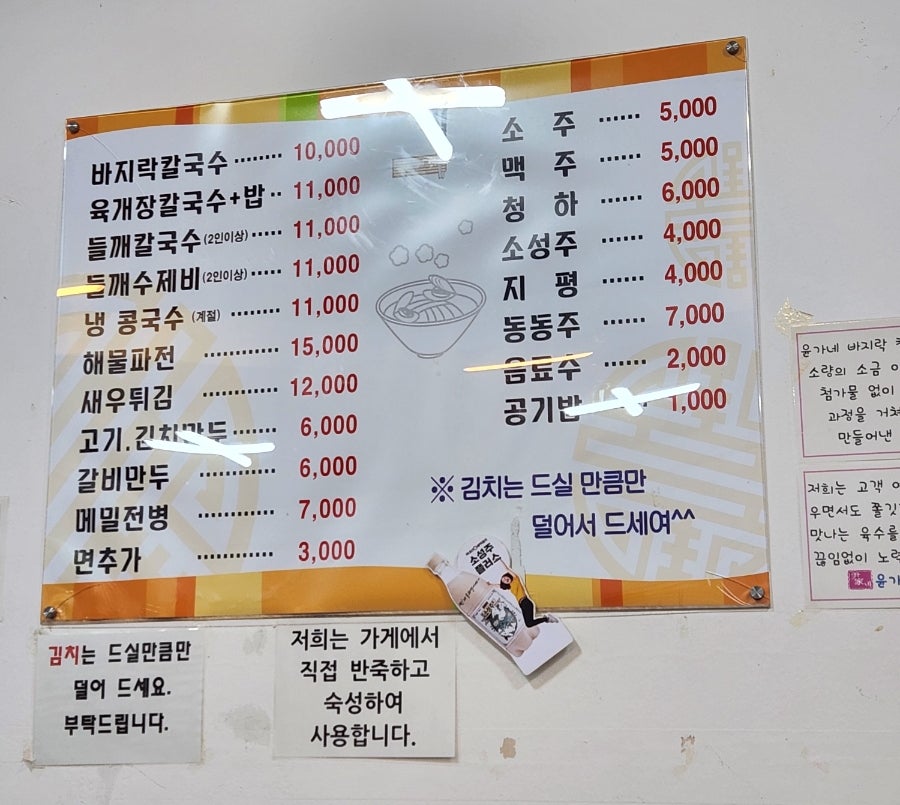 바지락칼국수 ········ 10,000
육개장칼국수+밥 ·· 11,000
들깨칼국수 (2인이상) ····· 11,000
들깨수제비 (2인이상) ····· 11,000
냉 콩국수 (계절) ······ 11,000
해물파전 ············ 15,000
새우튀김 ············ 12,000
고기.김치만두 ······· 6,000
갈비만두 ············ 6,000
메밀전병 ············ 7,000
면추가 ············ 3,000
소 주 ······ 5,000
맥 주 ······ 5,000
청 하 ······ 6,000
소성주 ······ 4,000
지 평 ······ 4,000
동동주 ······ 7,000
음료수 ······ 2,000
공기밥 ······ 1,000
※ 김치는 드실 만큼만
덜어서 드세여^^
소성주
플러스
김치는 드실만큼만
덜어 드세요.
부탁드립니다.
저희는 가게에서
직접 반죽하고
숙성하여
사용합니다.
윤가네 바지락
소량의 소금
첨가물 없이
과정을 거쳐
만들어낸
저희는 고객
우면서도 쫄깃
맛나는 육수를
끊임없이 노력
윤가